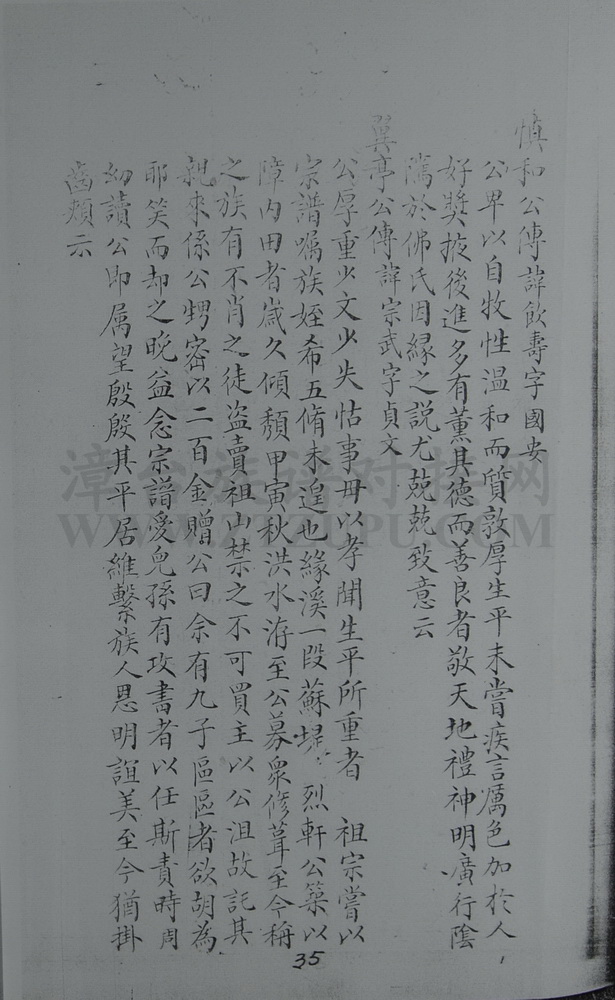 慎和公傳諱飲壽字國安
公卑以自牧性溫和而質敦厚生平未嘗疾言厲色加於人
好獎掖後進多有薰其德而善良者敬天地禮神明廣行陰
隲於佛氏因緣之説尤兢兢致意云
翼亭公傳諱宗武字貞文
公厚重少文少失怙事毋以孝聞生平所重者 祖宗嘗以
宗譜囑族姪希五脩未遑也緣溪一段蘇堤 烈軒公築以
障内田者歲久傾頹甲寅秋洪水洊至公募衆修葺至今稱
之族有不肖之徒盗賣祖山禁之不可買主以公沮故託其
親來係公甥密以二百金贈公曰余有九子區區者欲胡為
耶笑而却之晚益念宗譜愛兒孫有攻書者以任斯責時周
幼讀公即属望殷殷其平居維繫族人恩明誼美至今猶掛
齒頰云
35